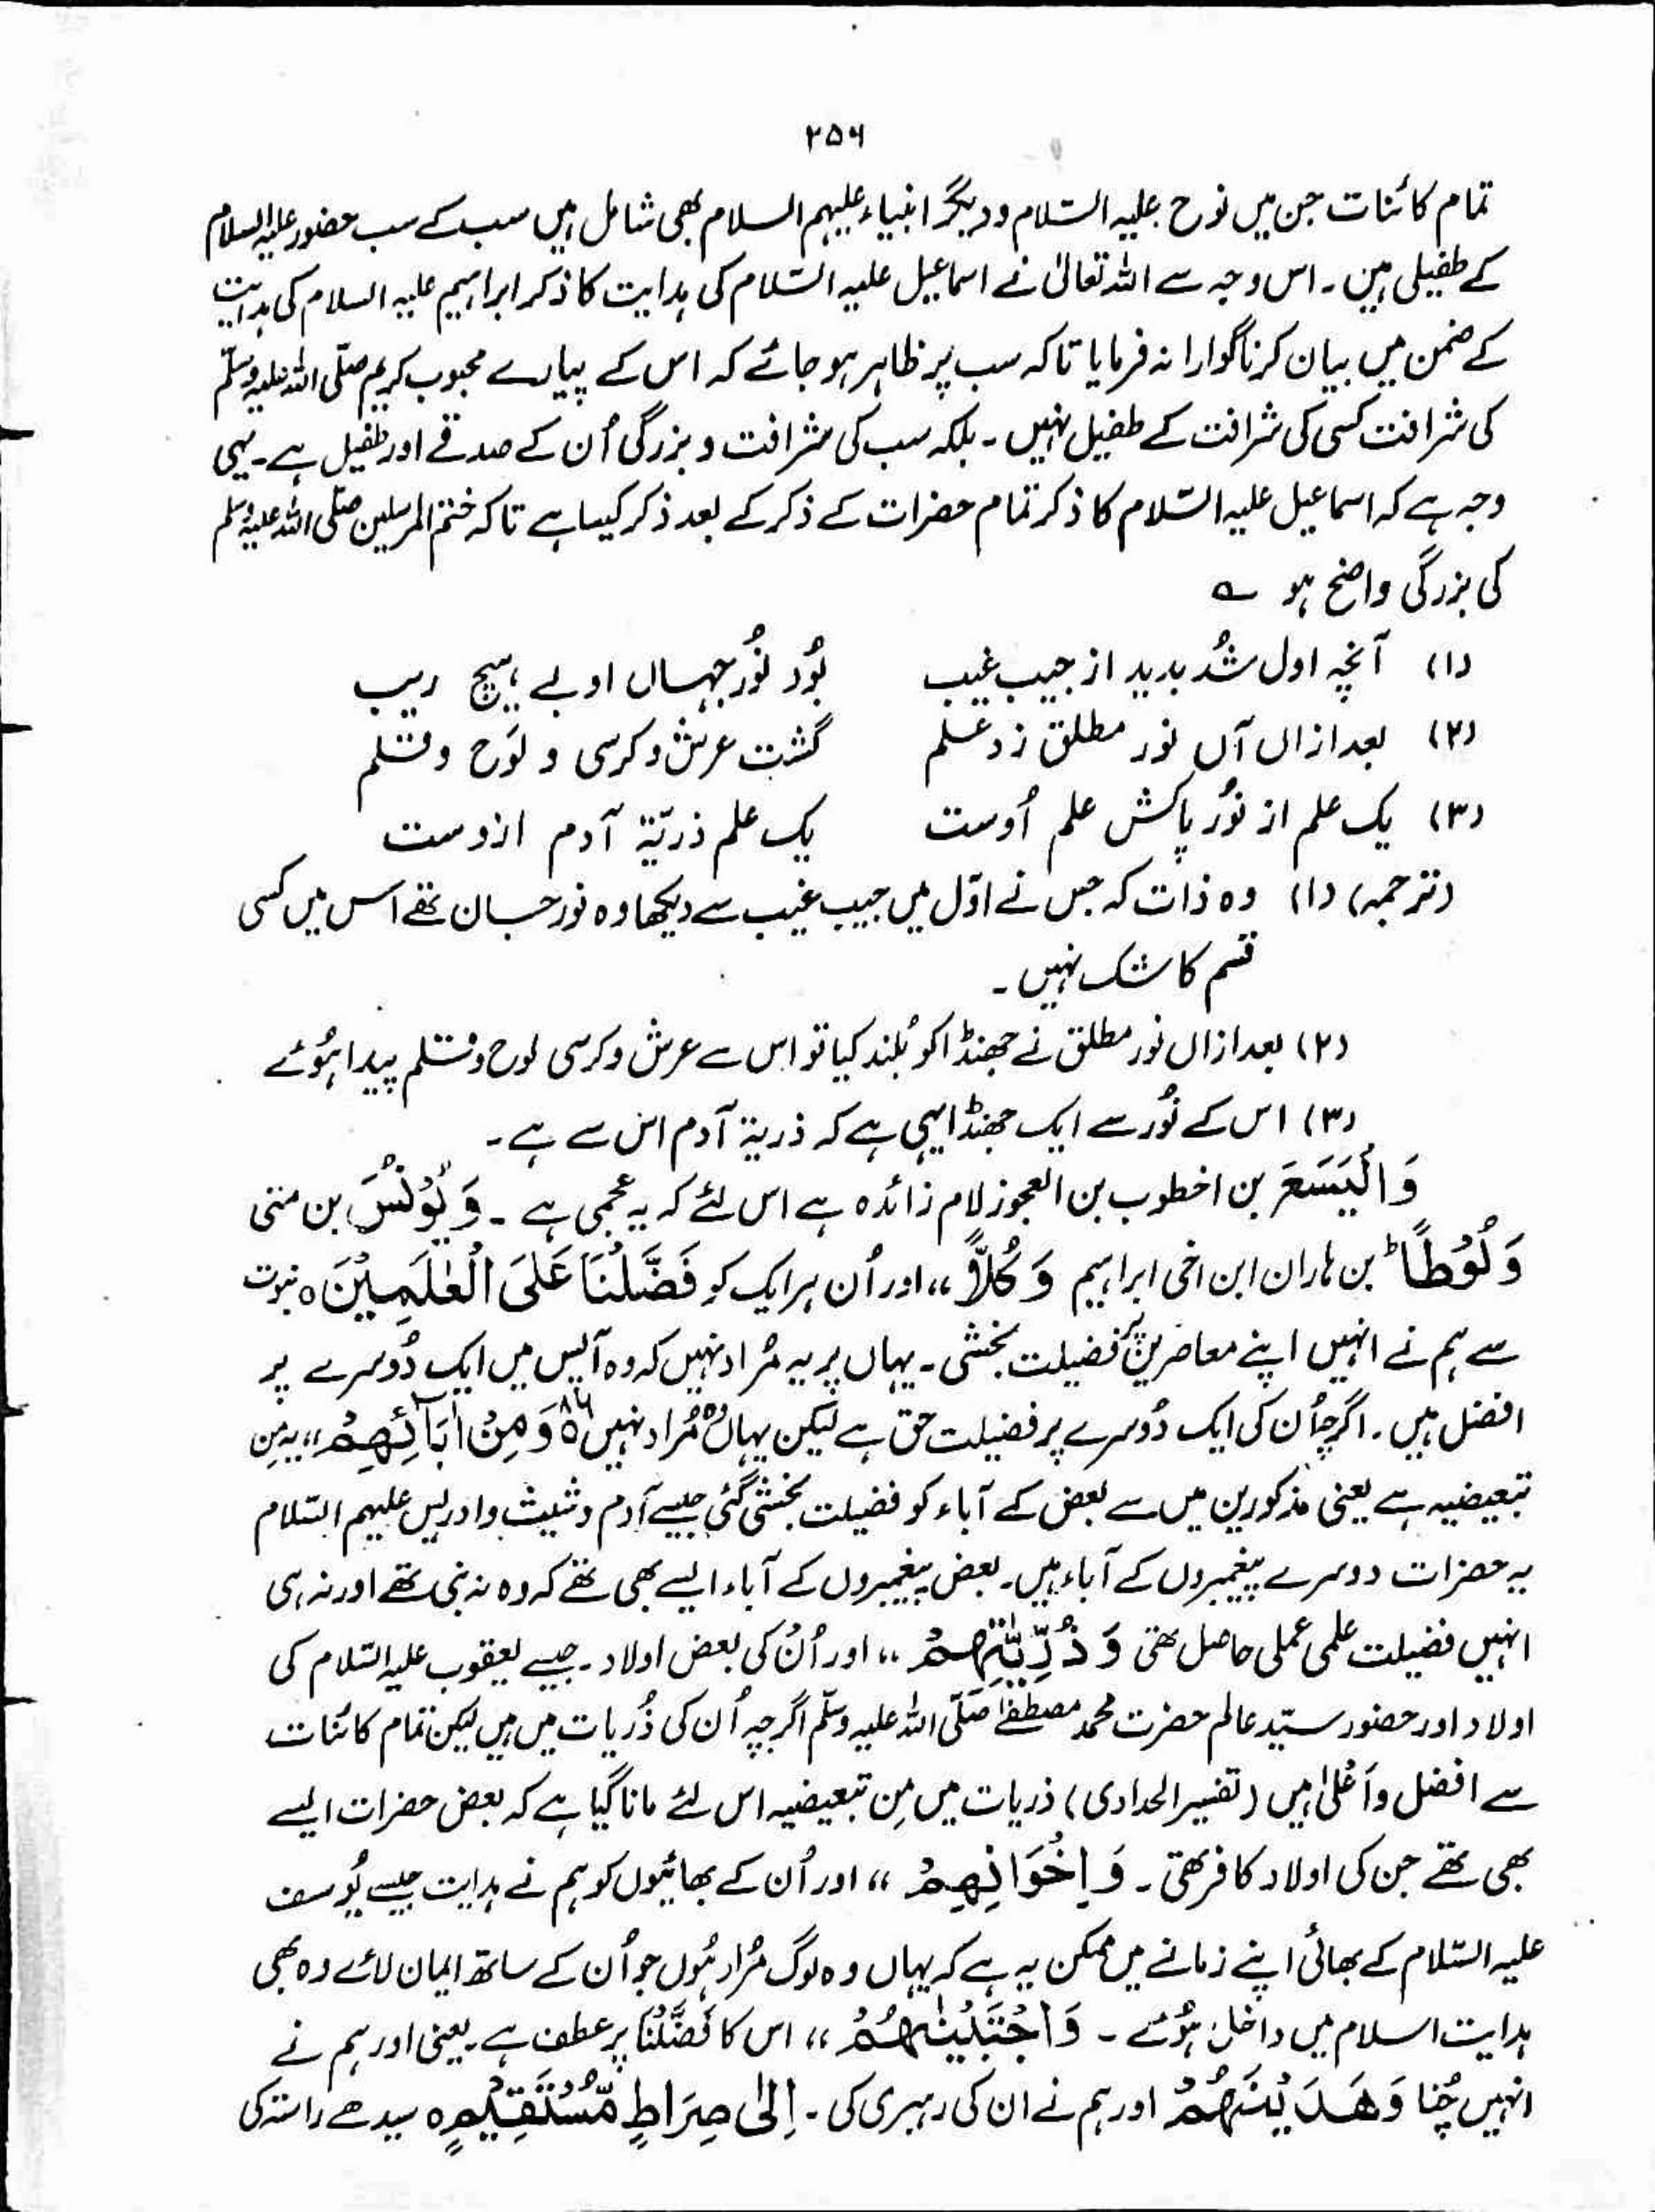 ۲۵۶
تمام کائنات جن میں نوح علیہ السّلام ودیگر انبیاء علیہم السلام بھی شامل ہیں سب کے سب حضور علیہ السلام
کے طفیلی ہیں ۔ اس وجہ سے اللہ تعالیٰ نے اسماعیل علیہ السّلام کی ہدایت کا ذکر ابراہیم علیہ السلام کی ہدایت
کے ضمن میں بیان کرنا گوارا نہ فرمایا تاکہ سب پر ظاہر ہو جائے کہ اس کے پیارے محبوب کریم صلّی اللہ علیہ وسلّم
کی شرافت کسی کی شرافت کے طفیل نہیں ۔ بلکہ سب کی شرافت و بزرگی اُن کے صدقے اور طفیل ہے ۔ یہی
وجہ ہے کہ اسماعیل علیہ السّلام کا ذکر تمام حضرات کے ذکر کے بعد ذکر کیا ہے تاکہ ختم المرسلین صلّی اللہ علیہ وسلم
کی بزرگی واضح ہو ؎
(۱) آنچہ اول شُد بدید از جیب غیب بُود نُور جہاں او بے ہیچ ریب
(۲) بعد ازاں آں نور مطلق زد علم گشت عرش و کرسی و لَوح و قلم
(۳) یک علم از نُور پاکش علم اُوست یک علم ذریّۃ آدم ازوست
(ترجمہ) (۱) وہ ذات کہ جس نے اوّل میں جیب غیب سے دیکھا وہ نور حسان تھے اس میں کسی
قسم کا شک نہیں ۔
(۲) بعد ازاں نور مطلق نے جھنڈا کو بُلند کیا تو اس سے عرش و کرسی لوح و قلم پیدا ہُوئے
(۳) اس کے نُور سے ایک جھنڈا یہی ہے کہ ذریۃ آدم اس سے ہے ۔
وَالْیَسَعَ بن اخطوب بن العجوز لام زائدہ ہے اس لئے کہ یہ عجمی ہے ۔ وَیُوْنُسَ بن متی
وَلُوْطًا ؕ بن ہاران ابن اخی ابراہیم وَکُلاًّ ،، اور اُن ہر ایک کو فَضَّلْنَا عَلَی الْعٰلَمِیْنَ ہ نبوت
سے ہم نے انہیں اپنے معاصرین پر فضیلت بخشی ۔ یہاں پر یہ مُراد نہیں کہ وہ آپس میں ایک دُوسرے پر
افضل ہیں ۔ اگرچہ اُن کی ایک دُوسرے پر فضیلت حق ہے لیکن یہاں وہ مُراد نہیں ۸۶ہ وَمِنْ اٰبَآئِھِمْ ،، یہ مِن
تبعیضیہ ہے یعنی مذکورین میں سے بعض کے آباء کو فضیلت بخشی گئی جیسے آدم و شیث و ادریس علیہم السّلام
یہ حضرات دوسرے پیغمبروں کے آباء ہیں ۔ بعض پیغمبروں کے آباء ایسے بھی تھے کہ وہ نہ نبی تھے اور نہ ہی
انہیں فضیلت علمی عملی حاصل تھی وَذُرِّیّٰتِھِمْ ،، اور اُن کی بعض اولاد ۔ جیسے یعقوب علیہ السّلام کی
اولاد اور حضور سیّد عالم حضرت محمد مصطفےٰ صَلّی اللہ علیہ وسلّم اگرچہ اُن کی ذُریات میں ہیں لیکن تمام کائنات
سے افضل و اَعْلیٰ ہیں (تفسیر الحدادی) ذریات میں مِن تبعیضیہ اس لئے مانا گیا ہے کہ بعض حضرات ایسے
بھی تھے جن کی اولاد کافر تھی ۔ وَاِخْوَانِھِمْ ،، اور اُن کے بھائیوں کو ہم نے ہدایت جیسے یُوسف
علیہ السّلام کے بھائی اپنے زمانے میں ممکن یہ ہے کہ یہاں وہ لوگ مُراد ہُوں جو اُن کے ساتھ ایمان لائے وہ بھی
ہدایت اسلام میں داخل ہُوئے ۔ وَاجْتَبَیْنٰھُمْ ،، اس کا فَضَّلْنَا پر عطف ہے ۔ یعنی اور ہم نے
انہیں چُنا وَھَدَیْنٰھُمْ اور ہم نے ان کی رہبری کی ۔ اِلٰی صِرَاطٍ مُّسْتَقِیْمٍ ہ سیدھے راستہ کی